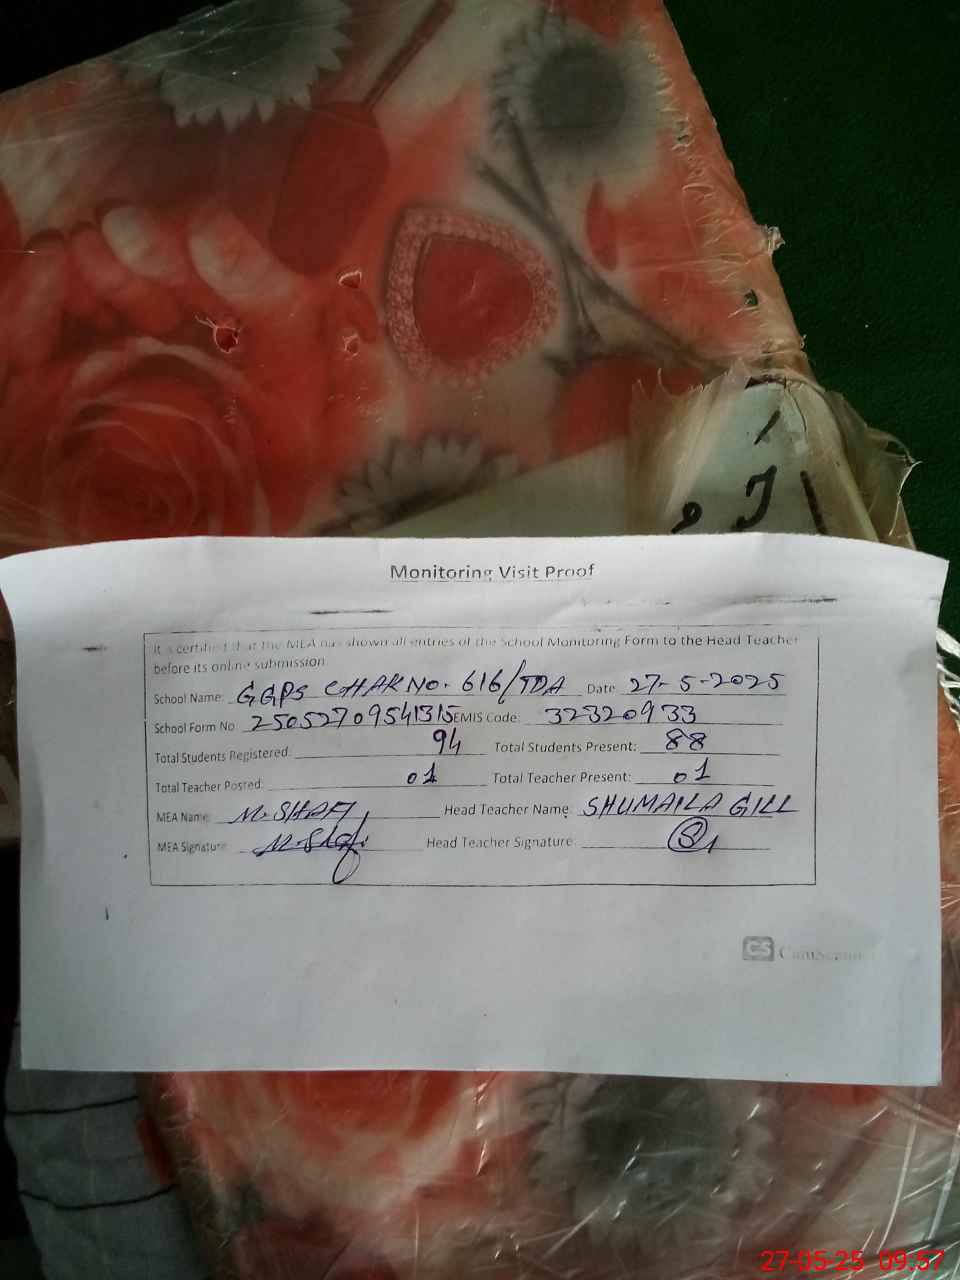 Monitoring Visit Proof
It is certified that the MEA has shown all entries of the School Monitoring Form to the Head Teacher
before its online submission
School Name: GGPS CHAK NO. 616/TDA Date 27-5-2025
School Form No 25052709541315 EMIS Code: 32320933
Total Students Registered: 94 Total Students Present: 88
Total Teacher Posted: 01 Total Teacher Present: 01
MEA Name: M. SHAFI Head Teacher Name: SHUMAILA GILL
MEA Signature: M. Shafi Head Teacher Signature:
CS CamScanner
27-05-25 09:57